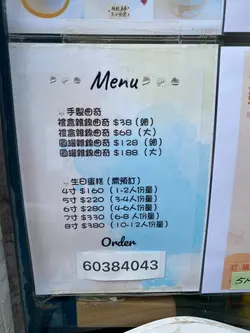 Menu
手製曲奇
禮盒雜錦曲奇 $38 (細)
禮盒雜錦曲奇 $68 (大)
圓罐雜錦曲奇 $128 (細)
圓罐雜錦曲奇 $188 (大)
生日蛋糕 (需預訂)
4寸 $160 (1-2人份量)
5寸 $220 (3-4人份量)
6寸 $280 (4-6人份量)
7寸 $330 (6-8人份量)
8寸 $380 (10-12人份量)
Order
60384043